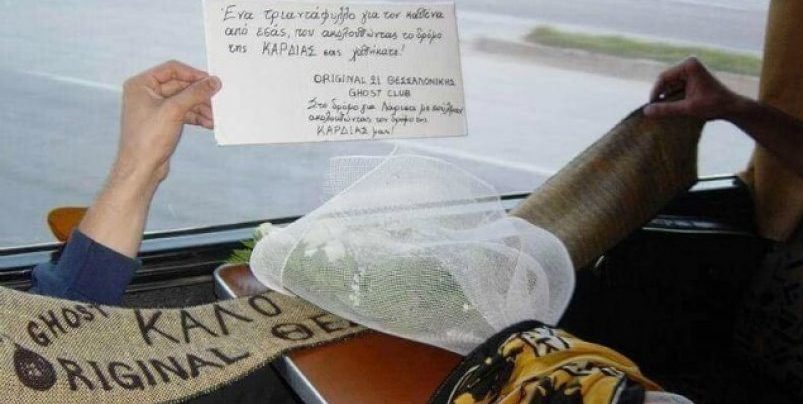 Ένα τριαντάφυλλο για τον καθένα
από εσάς, που ακολουθώντας το δρόμο
της ΚΑΡΔΙΑΣ σας χαθήκατε!
ORIGINAL 21 ΘΕΣΣΑΛΟΝΙΚΗΣ
GHOST CLUB
Στο δρόμο για Λάρισα με
ακολουθώντας τον δρόμο της
ΚΑΡΔΙΑΣ μας!
GHOST ΚΑΛΟ
ORIGINAL ΘΕΣ